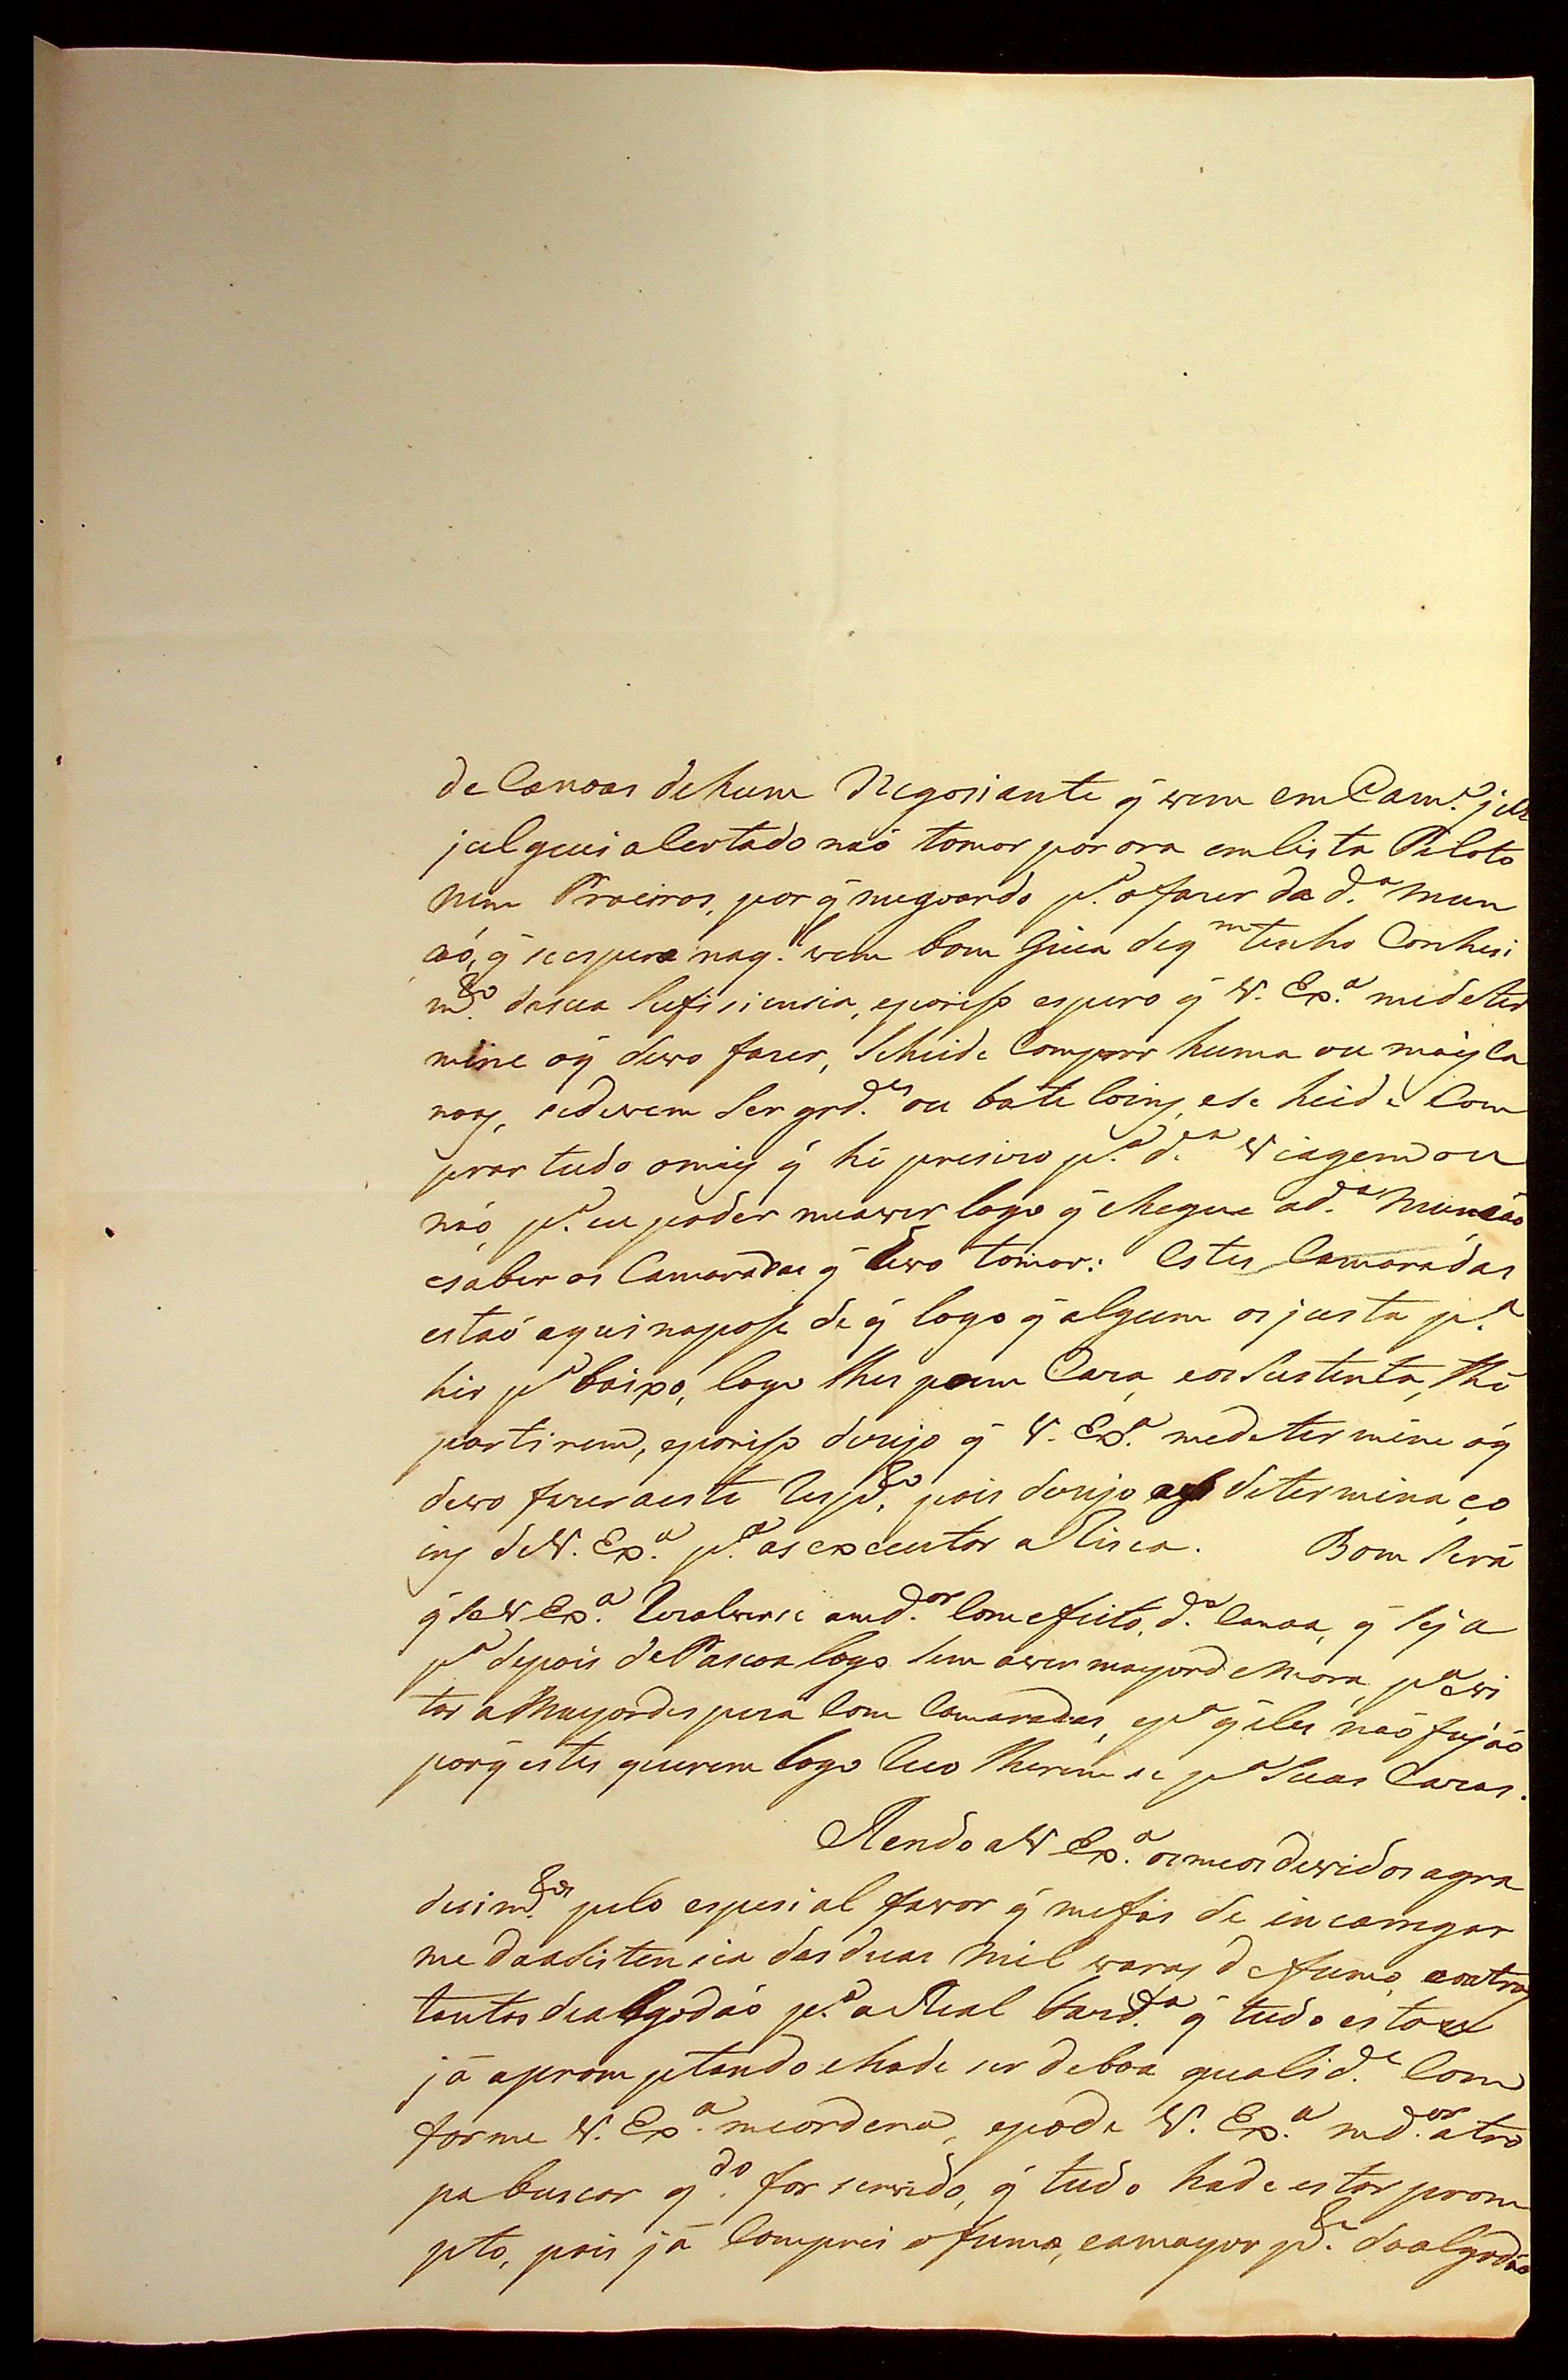 de Canoas de hum Negosiante q̃ vem em Cam.º, já
julguei alertado naó tomar por ora em lista Piloto
nem Proeiros, por q̃ meguardo p.ª o fazer da d.ª Mun
saó, q̃ se espera naq.l vem bom Guia deq.m tenho Conhesi
m.to dasua Sufisiensia, eporisso espero q̃ V. Ex.ª medeter
mine oq̃ devo fazer, Seheide Comprar huma ou maiz Ca
noaz, sedevem Ser grd.es ou bateloinz, ese heide Com
prar tudo omaiz q̃ hé presizo p.ª d.ª Viagem ou
naó, p.ª eu poder meaver logo q̃ chegue ad.ª Munsáo
esaber os Camaradas q̃ devo tomar: Estes Camaradas
estaó aqui naposse de q̃ logo q̃ algum os justa p.ª
hir p.ª baixo, logo lhes poem Caza, eos Sustenta, thé
partirem, eporisso dezejo q̃ V. Ex.ª medetermine oq̃
devo fazer aeste Resp.to, pois dezejo as determinaço
inz de V. Ex.ª p.ª as executar a Risca. Bom Será
q̃ Se V Ex.ª Rezalverse amd.ar Com efeito, d.ª Canoa, q̃ Seja
p.ª depois dePascoa logo Sem aver mayor demora, p.ª evi
tar a Mayor despeza Com Camaradas, ep.ª q̃ eles naó fujáo
porq̃ estes querem logo Recolheremse p.ª Suas Cazas.
Rendo a V Ex.ª osmeos devidos agra
desim.tos pelo espesial favor q̃ mefás de incarregar
me daasistensia das duas mil varaz de fumo, eoutraz
tantas dealgodáo p.ª a Real Faz.da q̃ tudo estou
já apromptando ehade ser deboa qualid.e Com
forme V. Ex.ª meordena, epode V. Ex.ª md.ar atro
pa buscar q.do for servido, q̃ tudo hade estar prom
pto, pois já Comprei o fumo, eamayor p.te doalgodáo